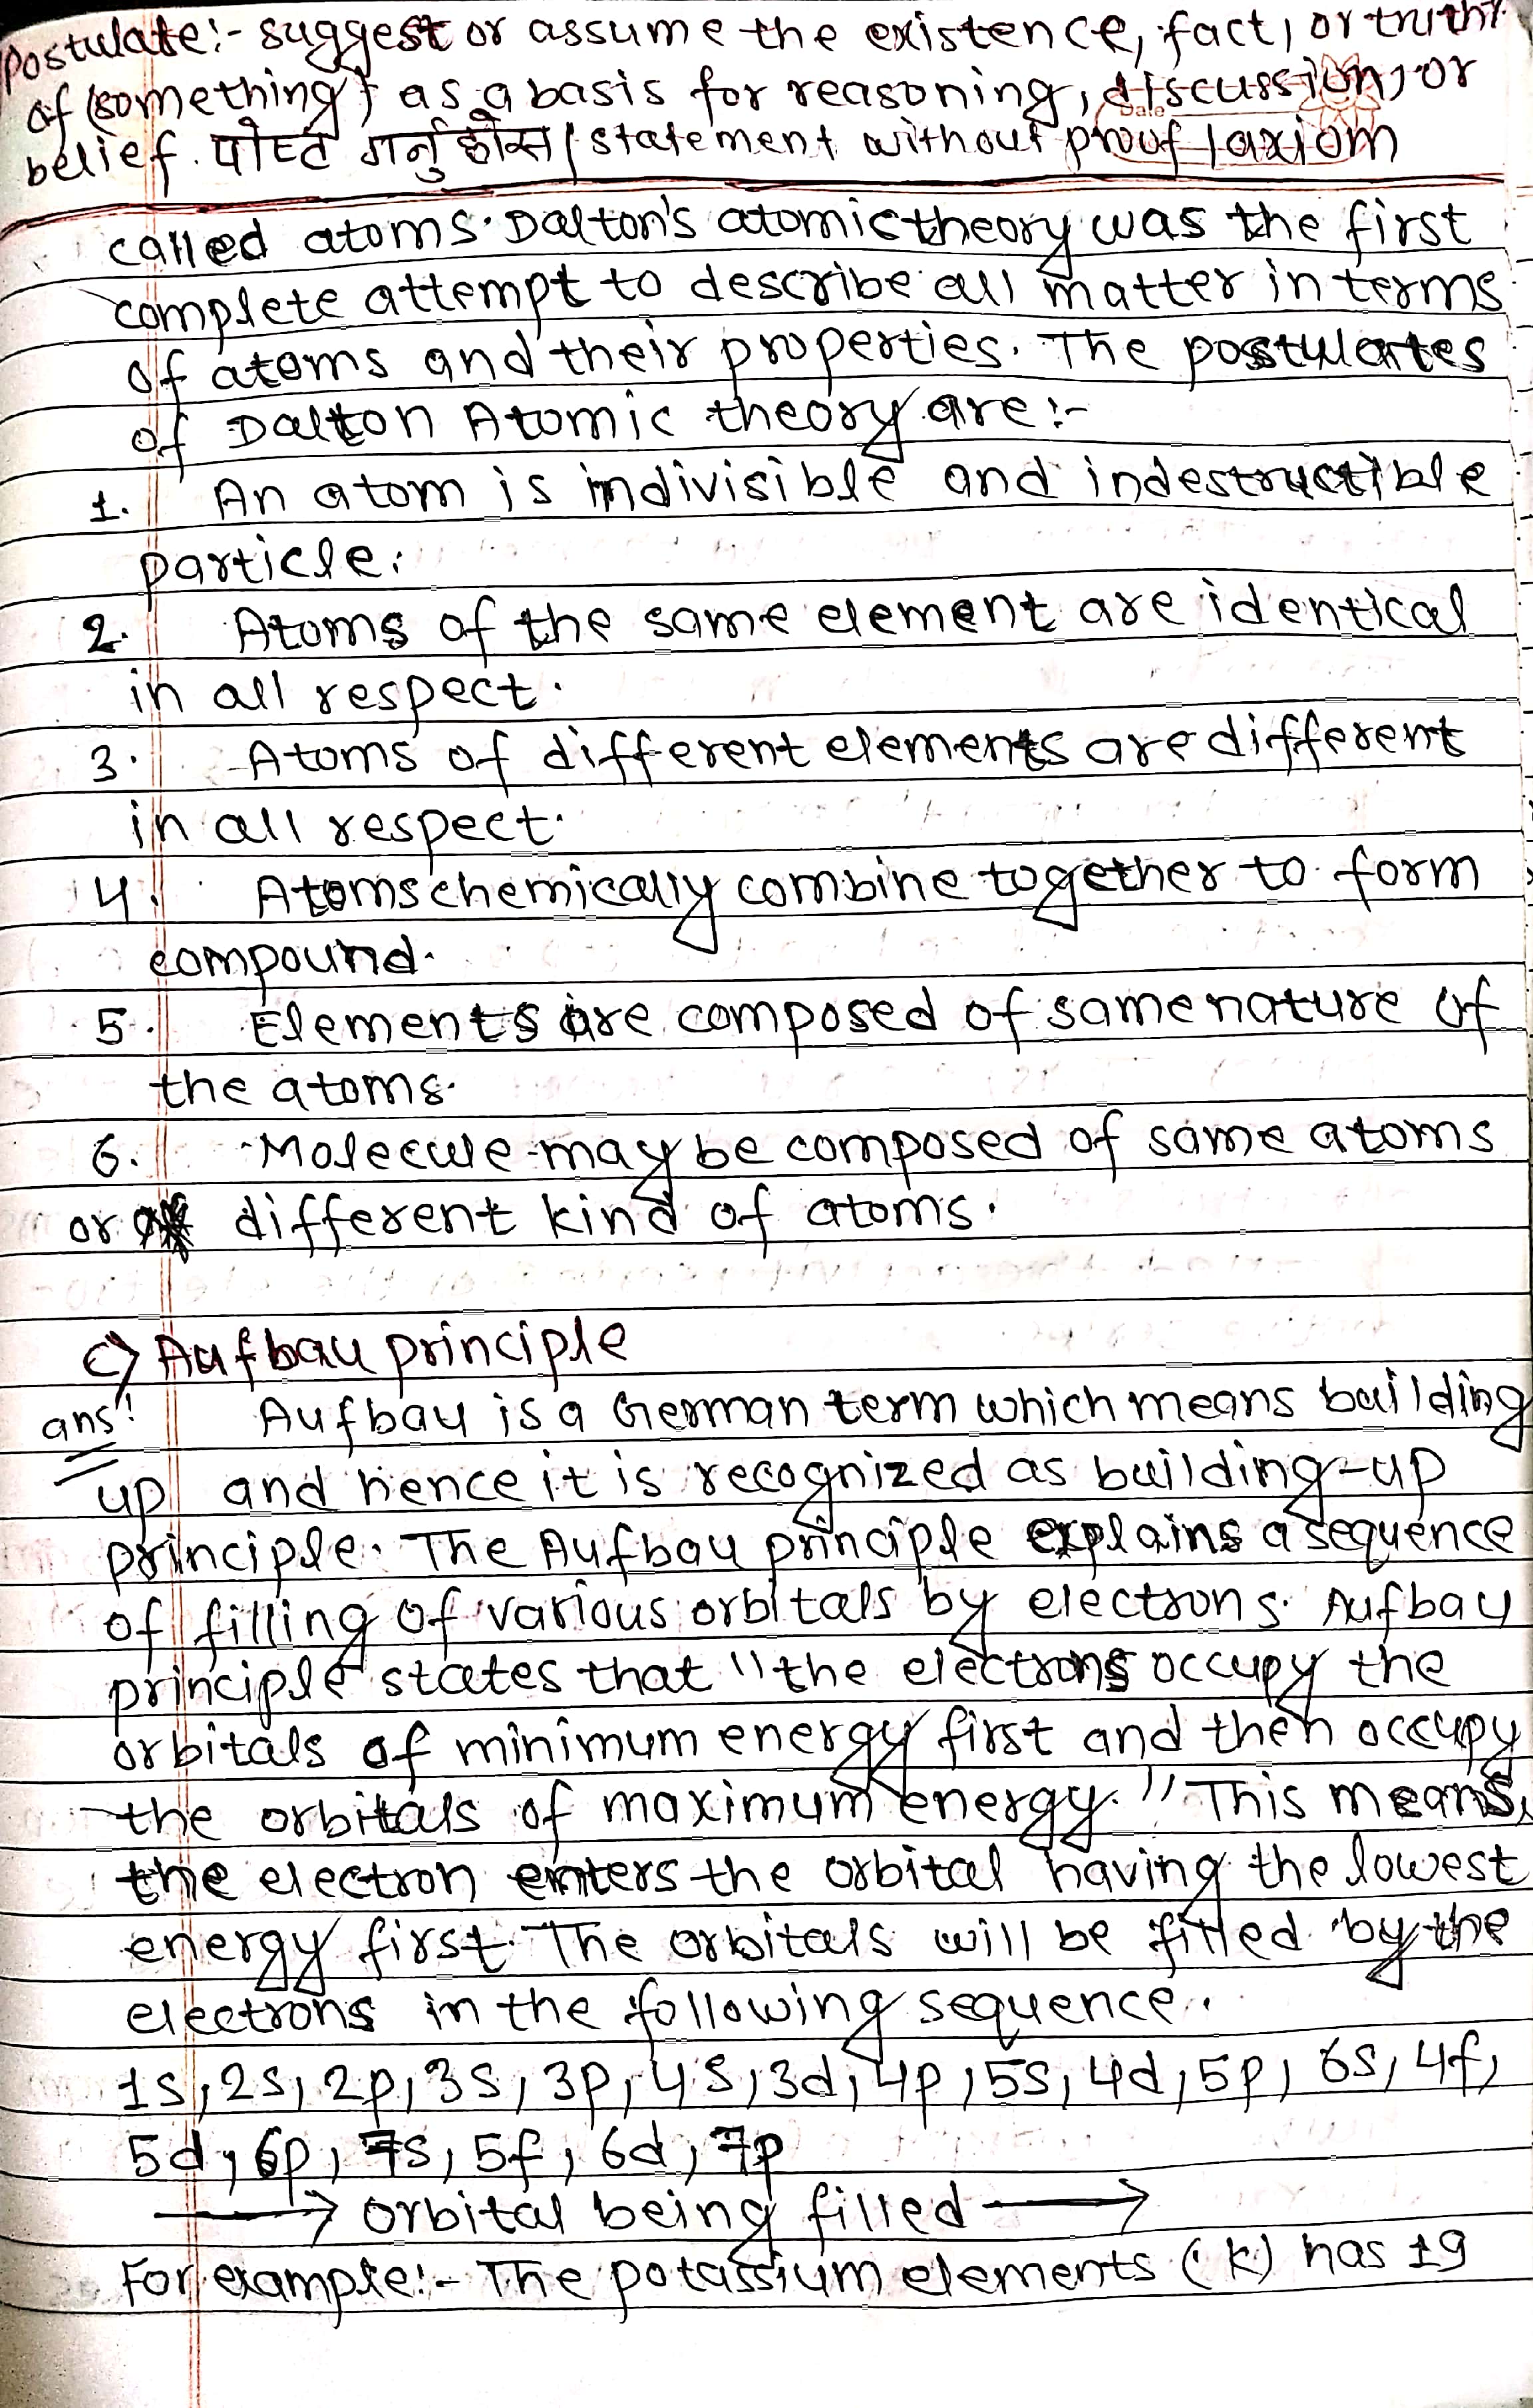 Postulate:- suggest or assume the existence, fact, or truth
of (something) as a basis for reasoning, discussion, or
belief. पोस्ट गर्नुहोस / statement without prouf / axiom
Date
called atoms. Dalton's atomic theory was the first
complete attempt to describe all matter in terms
of atoms and their properties. The postulates
of Dalton Atomic theory are:-
1. An atom is indivisible and indestructible
particle.
2. Atoms of the same element are identical
in all respect.
3. Atoms of different elements are different
in all respect.
4. Atoms chemically combine together to form
compound.
5. Elements are composed of same nature of
the atoms.
6. Molecule may be composed of same atoms
or different kind of atoms.
c) Aufbau principle
ans: Aufbau is a German term which means building
up and hence it is recognized as building-up
principle. The Aufbau principle explains a sequence
of filling of various orbitals by electrons. Aufbau
principle states that "the electrons occupy the
orbitals of minimum energy first and then occupy
the orbitals of maximum energy." This means,
the electron enters the orbital having the lowest
energy first. The orbitals will be filled by the
electrons in the following sequence.
1s, 2s, 2p, 3s, 3p, 4s, 3d, 4p, 5s, 4d, 5p, 6s, 4f,
5d, 6p, 7s, 5f, 6d, 7p
→ orbital being filled →
For example:- The potassium elements (K) has 19